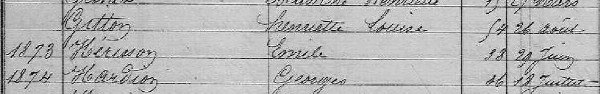 Gitton Henriette Louise 54 26 août
1873 Hérisson Emile 38 20 Juin
1874 Hardion Georges 06 18 Juillet